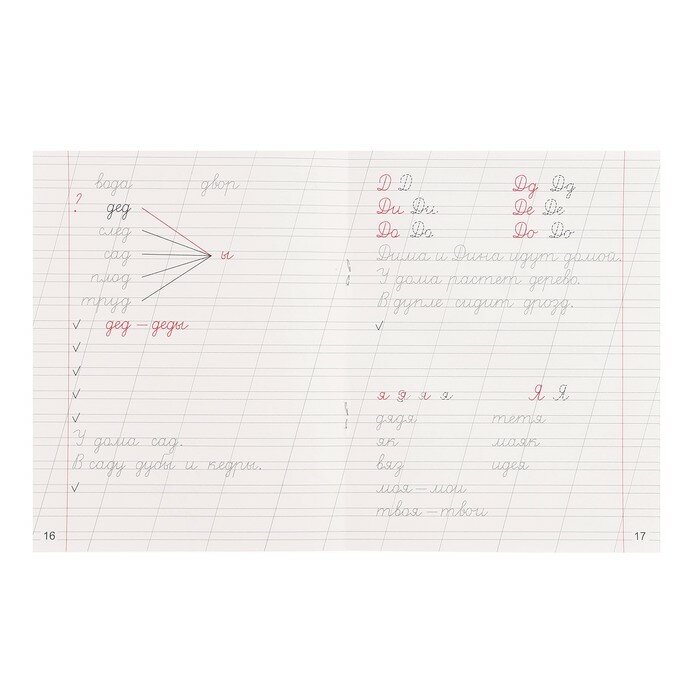 вода двор
?
дед
след
сад ы
плод
труд
✓ дед – деды
✓
✓
✓
✓
У дома сад.
В саду дубы и кедры.
✓
16
Д Д Дд Дд
Ди Ди Де Де
Да Да До До
Дима и Дина идут домой.
У дома растет дерево.
В дупле сидит дрозд.
✓
я я я я Я Я
дядя тетя
як маяк
вяз идея
моя – мои
твоя – твои
17